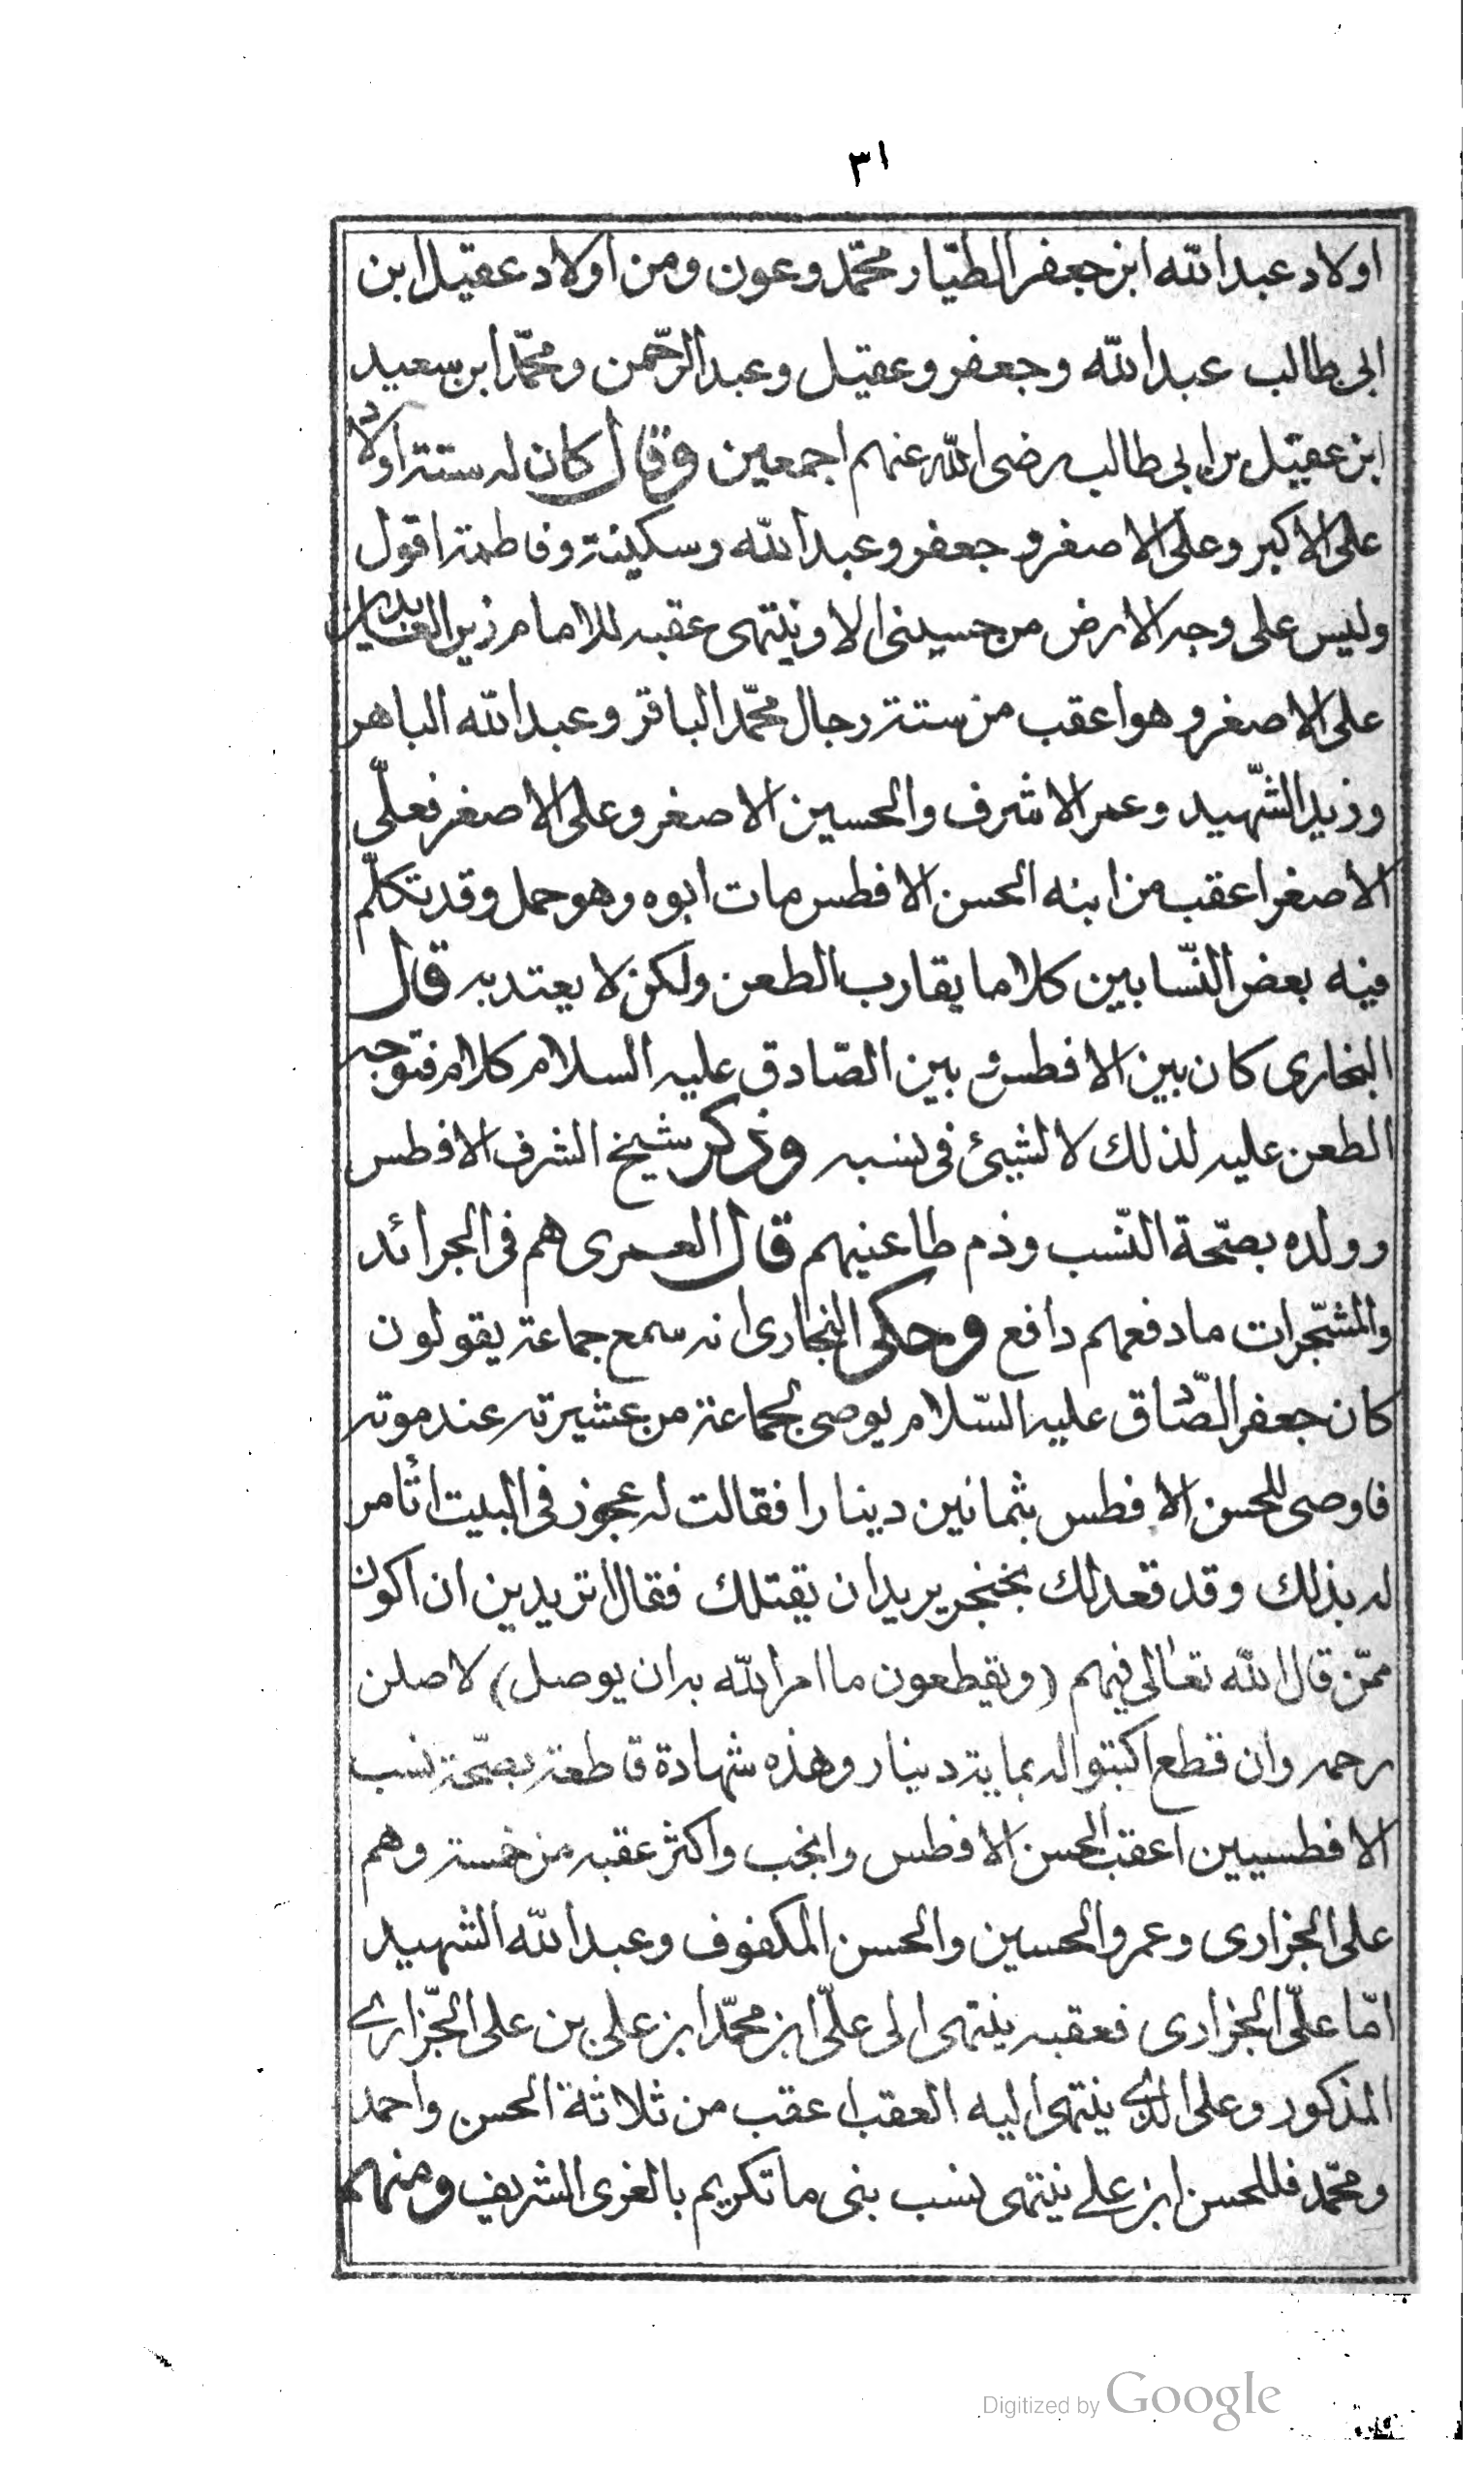 ٣١
اولاد عبدالله ابن جعفر الطيّار محمّد وعون ومن اولاد عقيل ابن
ابى طالب عبدالله وجعفر وعقيل وعبدالرّحمن ومحمّد ابن سعيد
ابن عقيل بن ابى طالب رضى الله عنهم اجمعين وقال كان له ستة اولاد
على الاكبر وعلى الاصغر وجعفر وعبدالله وسكينة وفاطمة اقول
وليس على وجه الارض من حسينى الا وينتهى عقبه للامام زين العابدين
على الاصغر وهو اعقب من ستة رجال محمّد الباقر وعبدالله الباهر
وزيد الشّهيد وعمر الاشرف والحسين الاصغر وعلى الاصغر فعلّى
الاصغر اعقب من ابنه الحسن الافطس مات ابوه وهو حمل وقد تكلّم
فيه بعض النّسابين كلاما يقارب الطعن ولكن لا يعتد به قال
البخارى كان بين الافطس وبين الصّادق عليه السلام كلام فتوجه
الطعن عليه لذلك لا لشيئ فى نسبه وذكر شيخ الشرف الافطس
وولده بصّحة النّسب وذم طاعنيهم قال العمرى هم فى الجرائد
والمشّجرات ما دفعهم دافع وحكى البخارى انه سمع جماعة يقولون
كان جعفر الصّادق عليه السّلام يوصى لجماعة من عشيرته عند موته
فاوصى للحسن الافطس بثمانين دينارا فقالت له عجوز فى البيت أتامر
له بذلك وقد قعد لك بخنجر يريد ان يقتلك فقال اتريدين ان اكون
ممّن قال الله تعالى فيهم (ويقطعون ما امر الله به ان يوصل) لاصلن
رحمه وان قطع اكتبوا له بماية دينار وهذه شهادة قاطعة بصّحة نسب
الافطسيين اعقب الحسن الافطس وانجب واكثر عقبه من خمسة وهم
على الخزارى وعمر والحسين والحسن المكفوف وعبدالله الشهيد
امّا علّى الخزارى فعقبه ينتهى الى علّى ابن محمّد ابن على بن على الخّزارى
المذكور وعلى الذى ينتهى اليه العقب اعقب من ثلاثة الحسن واحمد
ومحمّد فللحسن ابن على ينتهى نسب بنى ماتكريم بالغرى الشريف ومنهم
Digitized by Google